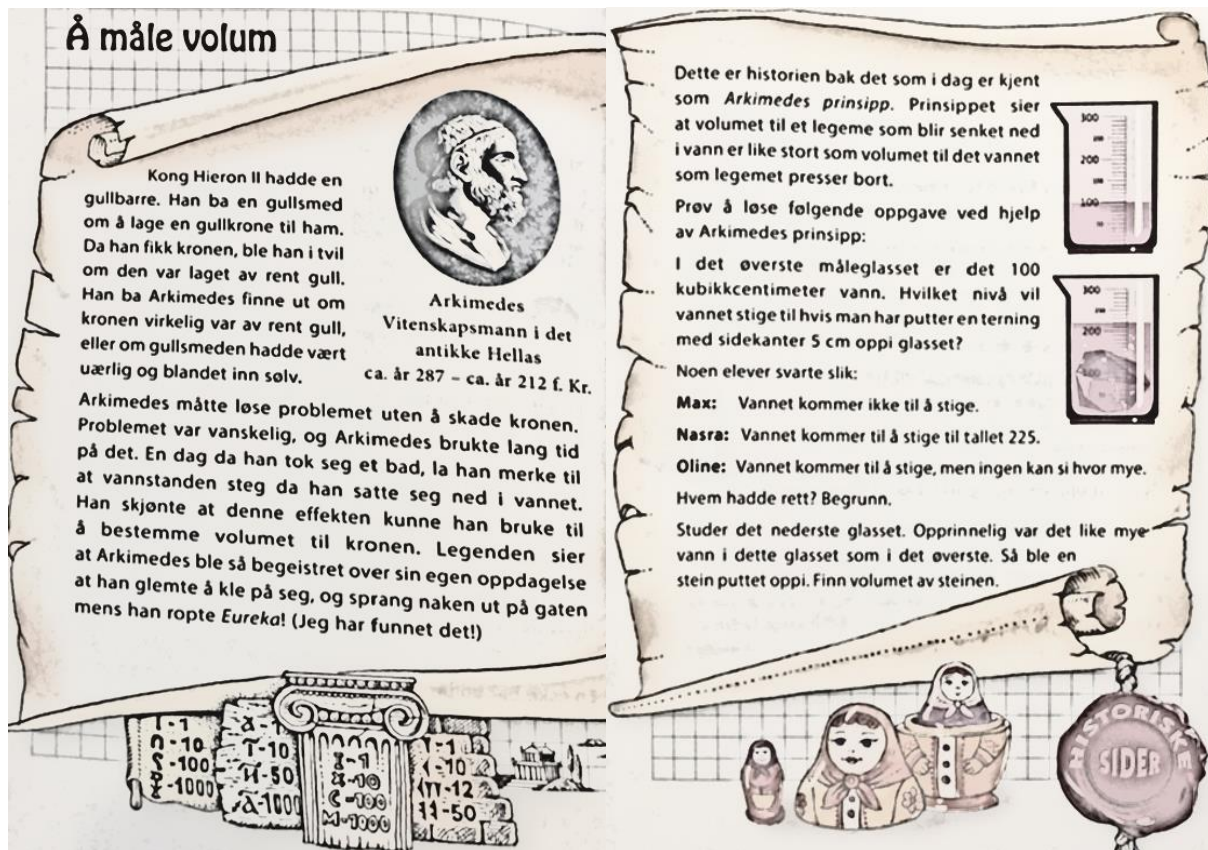 Å måle volum
Kong Hieron II hadde en
gullbarre. Han ba en gullsmed
om å lage en gullkrone til ham.
Da han fikk kronen, ble han i tvil
om den var laget av rent gull.
Han ba Arkimedes finne ut om
kronen virkelig var av rent gull,
eller om gullsmeden hadde vært
uærlig og blandet inn sølv.
Arkimedes
Vitenskapsmann i det
antikke Hellas
ca. år 287 – ca. år 212 f. Kr.
Arkimedes måtte løse problemet uten å skade kronen.
Problemet var vanskelig, og Arkimedes brukte lang tid
på det. En dag da han tok seg et bad, la han merke til
at vannstanden steg da han satte seg ned i vannet.
Han skjønte at denne effekten kunne han bruke til
å bestemme volumet til kronen. Legenden sier
at Arkimedes ble så begeistret over sin egen oppdagelse
at han glemte å kle på seg, og sprang naken ut på gaten
mens han ropte Eureka! (Jeg har funnet det!)
-1
-10
-100
-1000
-10
-50
-1000
I-1
X-10
C-100
M-1000
-1
-10
-12
-50
Dette er historien bak det som i dag er kjent
som Arkimedes prinsipp. Prinsippet sier
at volumet til et legeme som blir senket ned
i vann er like stort som volumet til det vannet
som legemet presser bort.
Prøv å løse følgende oppgave ved hjelp
av Arkimedes prinsipp:
I det øverste måleglasset er det 100
kubikkcentimeter vann. Hvilket nivå vil
vannet stige til hvis man har putter en terning
med sidekanter 5 cm oppi glasset?
Noen elever svarte slik:
Max: Vannet kommer ikke til å stige.
Nasra: Vannet kommer til å stige til tallet 225.
Oline: Vannet kommer til å stige, men ingen kan si hvor mye.
Hvem hadde rett? Begrunn.
Studer det nederste glasset. Opprinnelig var det like mye
vann i dette glasset som i det øverste. Så ble en
stein puttet oppi. Finn volumet av steinen.
300
200
100
300
200
100
HISTORISKE
SIDER